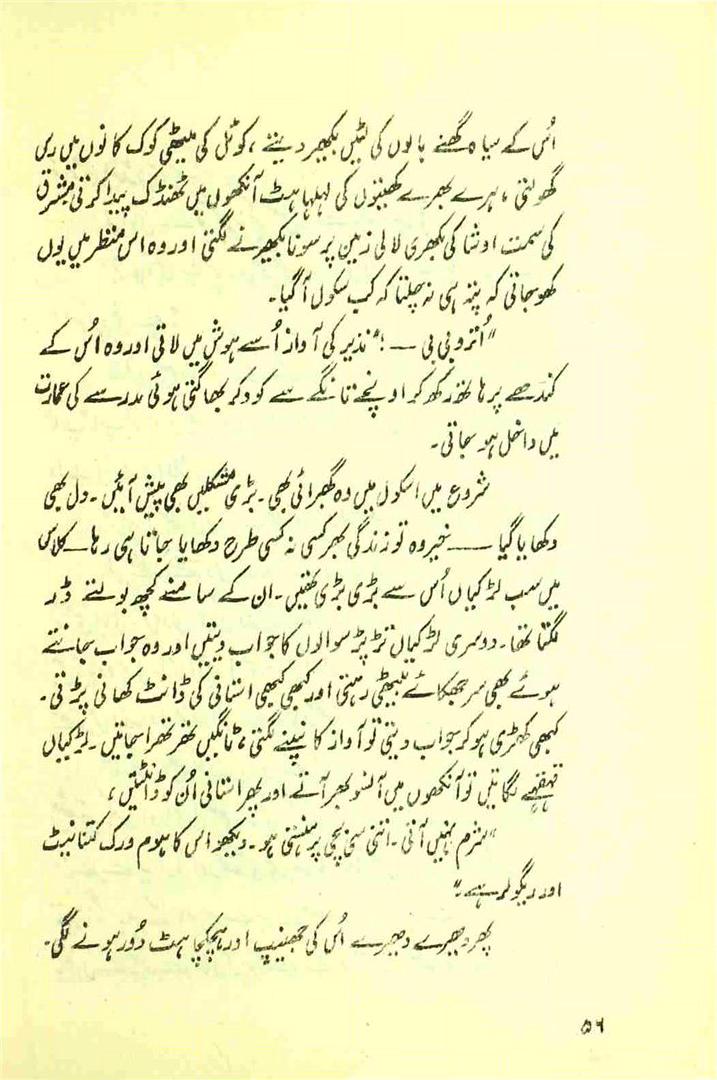 اُس کے سیاہ گھنے بالوں کی لٹیں بکھیر دیتے ، کوئل کی میٹھی کوک کانوں میں رس
گھولتی ، ہرے بھرے کھیتوں کی لہلہاہٹ آنکھوں میں ٹھنڈک پیدا کرتی مشرق
کی سمت اوشا کی نکھری لالی زمین پر سونا بکھیرنے لگتی اور وہ اس منظر میں یوں
کھو جاتی کہ پتہ ہی نہ چلتا کہ کب سکول آ گیا۔
"اُترو بی بی — !" نذیر کی آواز اُسے ہوش میں لاتی اور وہ اُس کے
کندھے پر ہاتھ رکھ کر اونچے تانگے سے کود کر بھاگتی ہوئی مدرسے کی عمارت
میں داخل ہو جاتی۔
شروع میں اسکول میں وہ گھبرائی بھی۔ بڑی مشکلیں بھی پیش آئیں۔ دل بھی
دکھایا گیا —— خیر وہ تو زندگی بھر کسی نہ کسی طرح دکھایا جاتا ہی رہا۔ کلاس
میں سب لڑکیاں اُس سے بڑی بڑی تھیں۔ ان کے سامنے کچھ بولتے ڈر
لگتا تھا۔ دوسری لڑکیاں تڑپڑ سوالوں کا جواب دیتیں اور وہ جواب جانتے
ہوئے بھی سر جھکائے بیٹھی رہتی اور کبھی کبھی استانی کی ڈانٹ کھانی پڑتی۔
کبھی کھڑی ہو کر جواب دیتی تو آواز کانپنے لگتی ، ٹانگیں تھر تھرا جاتیں۔ لڑکیاں
قہقہے لگاتیں تو آنکھوں میں آنسو بھر آتے اور پھر استانی اُن کو ڈانٹتیں ،
"شرم نہیں آتی۔ اتنی سی بچی پر ہنستی ہو۔ دیکھو اس کا ہوم ورک کتنا نیٹ
اور ریگولر ہے۔"
پھر دھیرے دھیرے اُس کی جھینپ اور ہچکچاہٹ دُور ہونے لگی۔
۵۶